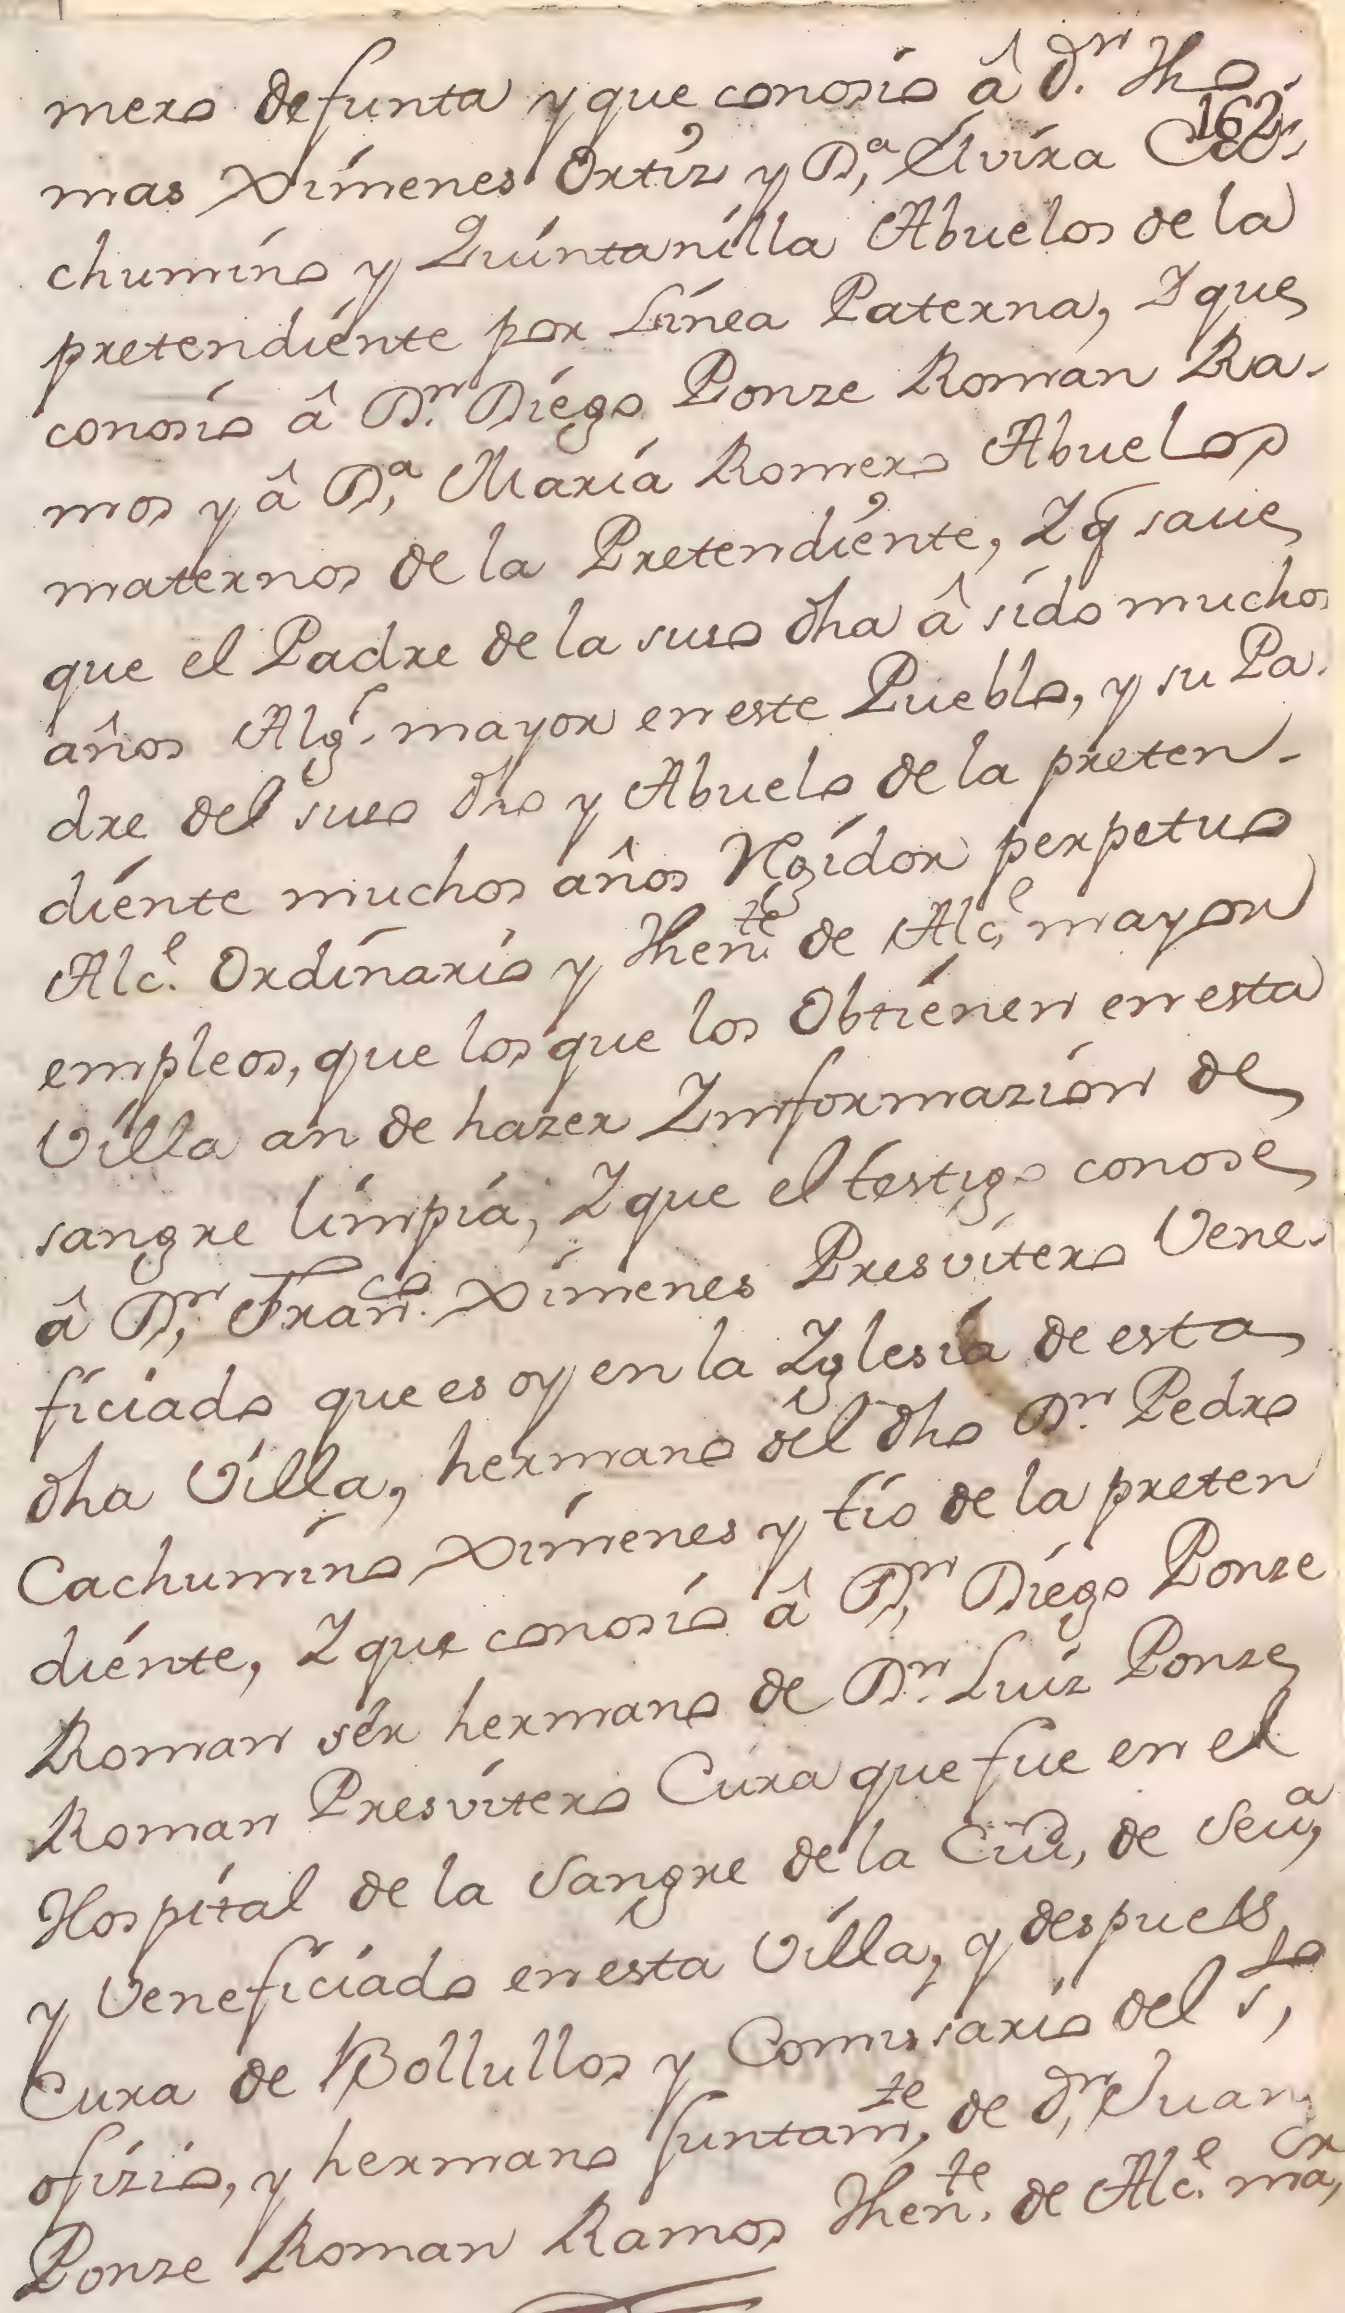 mero defunta y que conosio â d.n Tho-
162
mas Ximenes Ortiz y D.a Elvira Ca-
chumino y Quintanilla Abuelos de la
pretendiente por Línea Paterna, Y que
conosio â D.n Diego Ponze Roman Ra-
mos y â D.a María Romero Abuelos
maternos de la Pretendiente, Y q̃ saue
que el Padre de la suso dha â sido muchos
años Alg.l mayor en este Pueblo, y su Pa-
dre del suso dho y Abuelo de la preten-
diente muchos años Rgidor perpetuo
Alc.e Ordinario y Then.te de Alc.e mayor
empleos, que los que los Obtienen en esta
Villa an de hazer Informazion de
sangre limpia, Y que el testigo conose
â D.n Fran.co Ximenes Presvitero Vene-
ficiado que es oy en la Yglesia de esta
dha Villa, hermano del dho D.n Pedro
Cachumino Ximenes y tio de la preten
diente, Y que conosio â D.n Diego Ponze
Roman ser hermano de D.n Luiz Ponze
Roman Presvitero Cura que fue en el
Hospital de la Sangre de la Ciud, de Seu.a
y Veneficiado en esta Villa, y despues
Cura de Bollullos y Comissario del S.to
ofizio, y hermano Juntam.te de d.n Juan
Ponze Roman Ramos Then.te de Alc.e ma.or